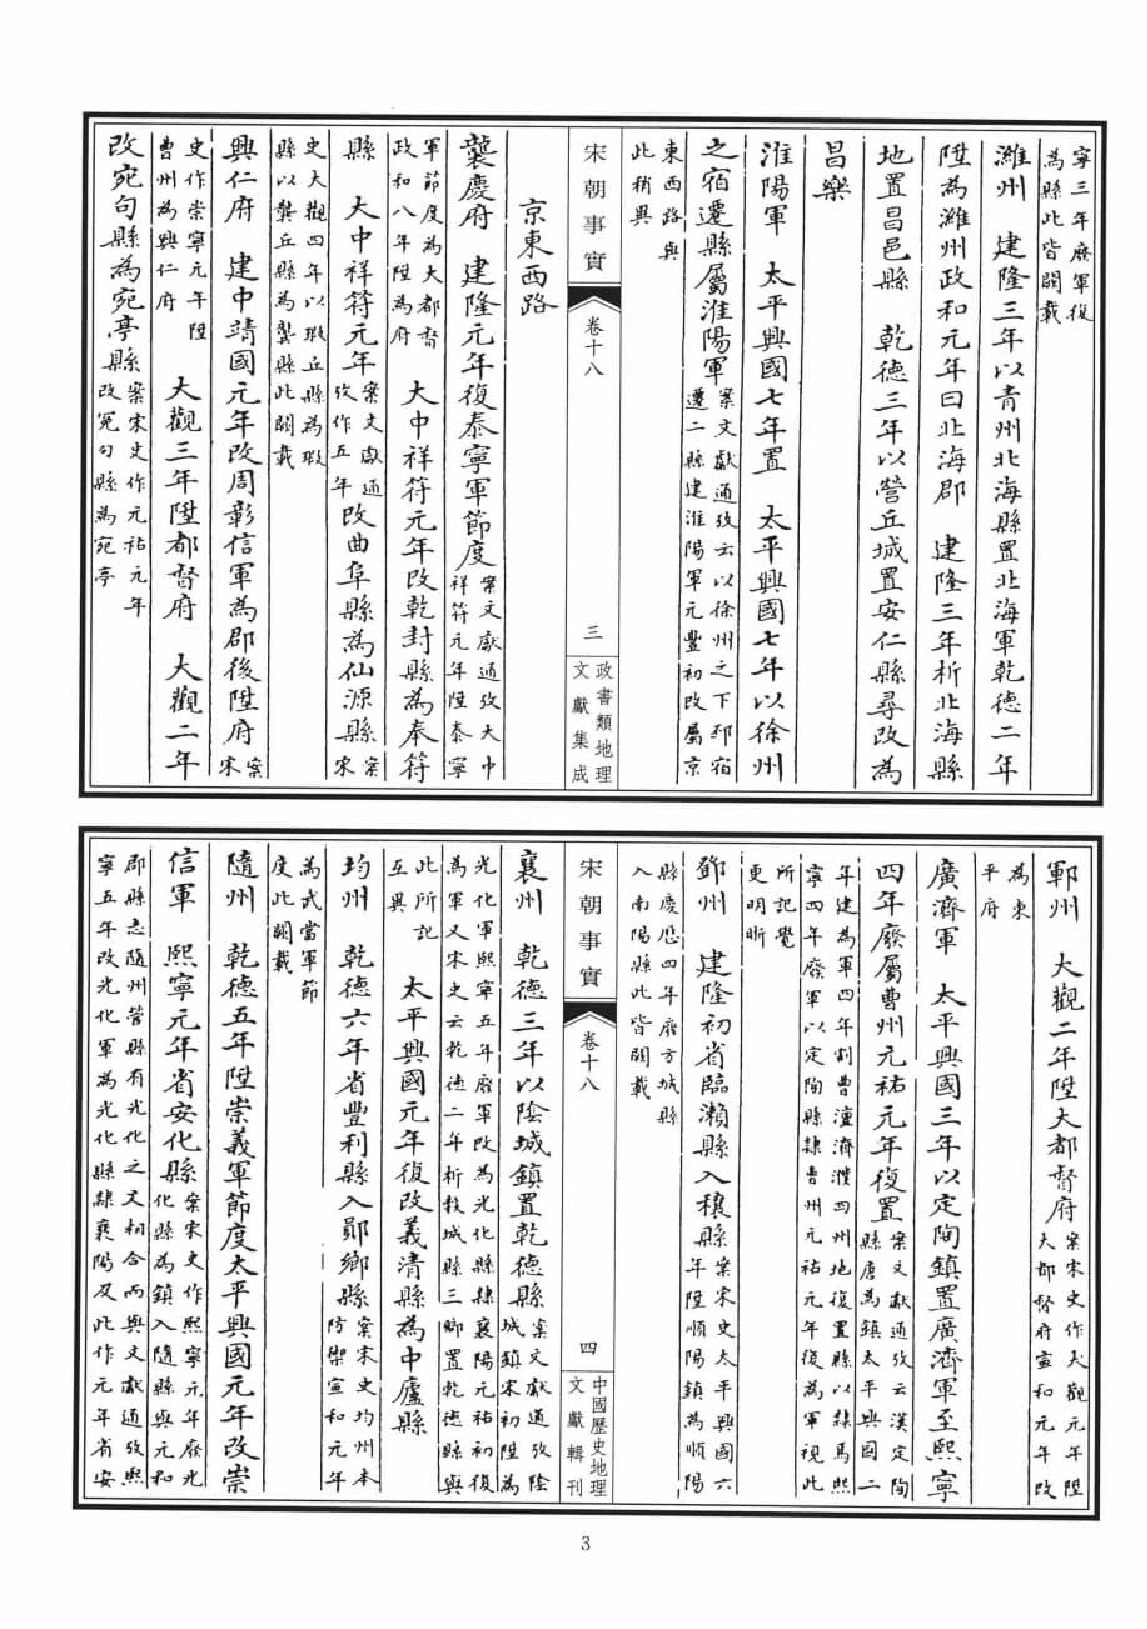 寧三年廢軍復
為縣此皆闕載
濰州　建隆三年以青州北海縣置北海軍乾德二年
陞為濰州政和元年曰北海郡　建隆三年析北海縣
地置昌邑縣　乾德三年以營丘城置安仁縣尋改為
昌樂
淮陽軍　太平興國七年置　太平興國七年以徐州
之宿遷縣屬淮陽軍
案文獻通攷云以徐州之下邳宿
遷二縣建淮陽軍元豐初改屬京
東西路與
此稍異
宋朝事實
卷十八
三
政書類地理
文獻集成
京東西路
襲慶府　建隆元年復泰寧軍節度
案文獻通攷大中
祥符元年陞泰寧
軍節度為大都督
政和八年陞為府
大中祥符元年改乾封縣為奉符
縣　大中祥符元年
案文獻通
攷作五年
改曲阜縣為仙源縣
案
宋
史大觀四年以瑕丘縣為瑕
縣以龔丘縣為龔縣此闕載
興仁府　建中靖國元年改周彰信軍為郡後陞府
案
宋
史作崇寧元年陞
曹州為興仁府
大觀三年陞都督府　大觀二年
改宛句縣為宛亭縣
案宋史作元祐元年
改冤句縣為宛亭
鄆州　大觀二年陞大都督府
案宋史作大觀元年陞
大都督府宣和元年改
為東
平府
廣濟軍　太平興國三年以定陶鎮置廣濟軍至熙寧
四年廢屬曹州元祐元年復置
案文獻通攷云漢定陶
縣唐為鎮太平興國二
年建為軍四年割曹澶濟濮四州地復置縣以隸焉熙
寧四年廢軍以定陶縣隸曹州元祐元年復為軍視此
所記覺
更明晰
鄧州　建隆初省臨瀨縣入穰縣
案宋史太平興國六
年陞順陽鎮為順陽
縣慶歷四年廢方城縣
入南陽縣此皆闕載
宋朝事實
卷十八
四
中國歷史地理
文獻輯刊
襄州　乾德三年以陰城鎮置乾德縣
案文獻通攷陰
城鎮宋初陞為
光化軍熙寧五年廢軍改為光化縣隸襄陽元祐初復
為軍又宋史云乾德二年析穀城縣三鄉置乾德縣與
此所記
互異
太平興國元年復改義清縣為中廬縣
均州　乾德六年省豐利縣入鄖鄉縣
案宋史均州本
防禦宣和元年
為武當軍節
度此闕載
隨州　乾德五年陞崇義軍節度太平興國元年改崇
信軍　熙寧元年省安化縣
案宋史作熙寧元年廢光
化縣為鎮入隨縣與元和
郡縣志隨州管縣有光化之文相合而與文獻通攷熙
寧五年改光化軍為光化縣隸襄陽及此作元年省安
3